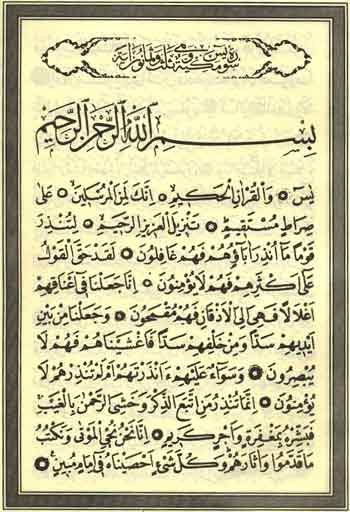 سورة يس مكية وهي ثلث وثمانون اية
بِسْمِ اللّٰهِ الرَّحْمٰنِ الرَّحِيمِ
يٰسٓ ۝ وَالْقُرْاٰنِ الْحَكِيمِ ۝ اِنَّكَ لَمِنَ الْمُرْسَلِينَ ۝ عَلٰى
صِرَاطٍ مُسْتَقِيمٍ ۝ تَنْزِيلَ الْعَزِيزِ الرَّحِيمِ ۝ لِتُنْذِرَ
قَوْمًا مَٓا اُنْذِرَ اٰبَٓاؤُهُمْ فَهُمْ غَافِلُونَ ۝ لَقَدْ حَقَّ الْقَوْلُ
عَلٰٓى اَكْثَرِهِمْ فَهُمْ لَا يُؤْمِنُونَ ۝ اِنَّا جَعَلْنَا فِٓى اَعْنَاقِهِمْ
اَغْلَالًا فَهِىَ اِلَى الْاَذْقَانِ فَهُمْ مُقْمَحُونَ ۝ وَجَعَلْنَا مِنْ بَيْنِ
اَيْدِيهِمْ سَدًّا وَمِنْ خَلْفِهِمْ سَدًّا فَاَغْشَيْنَاهُمْ فَهُمْ لَا
يُبْصِرُونَ ۝ وَسَوَٓاءٌ عَلَيْهِمْ ءَاَنْذَرْتَهُمْ اَمْ لَمْ تُنْذِرْهُمْ لَا
يُؤْمِنُونَ ۝ اِنَّمَا تُنْذِرُ مَنِ اتَّبَعَ الذِّكْرَ وَخَشِىَ الرَّحْمٰنَ بِالْغَيْبِ
فَبَشِّرْهُ بِمَغْفِرَةٍ وَاَجْرٍ كَرِيمٍ ۝ اِنَّا نَحْنُ نُحْيِ الْمَوْتٰى وَنَكْتُبُ
مَا قَدَّمُوا وَاٰثَارَهُمْ وَكُلَّ شَىْءٍ اَحْصَيْنَاهُ فِٓى اِمَامٍ مُبِينٍ ۝